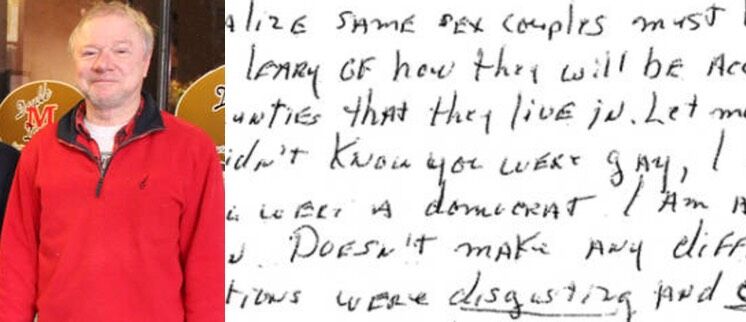 ALIZE SAME SEX Couples must
LEARY OF how they will BE Acc
unties thAt they live in. Let m
idn't Know you WERE gAy, I
WERE A democRAT I Am A
DoESN'T mAKe ANy diff
tions WERE disgusting AND
M